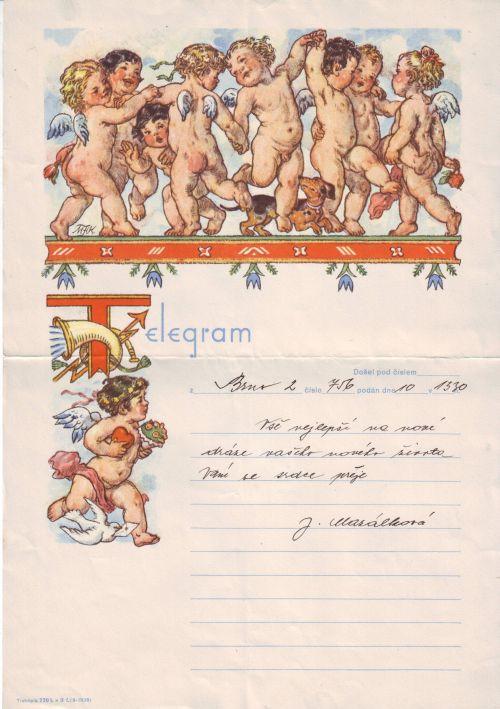 MFK
Telegram
Došel pod číslem
z Brno 2 číslo 756 podán dne 10 v 1330
Vše nejlepší na nové
dráze vašeho nového života
Vám ze srdce přeje
J. Masálková
Tiskopis 220 b